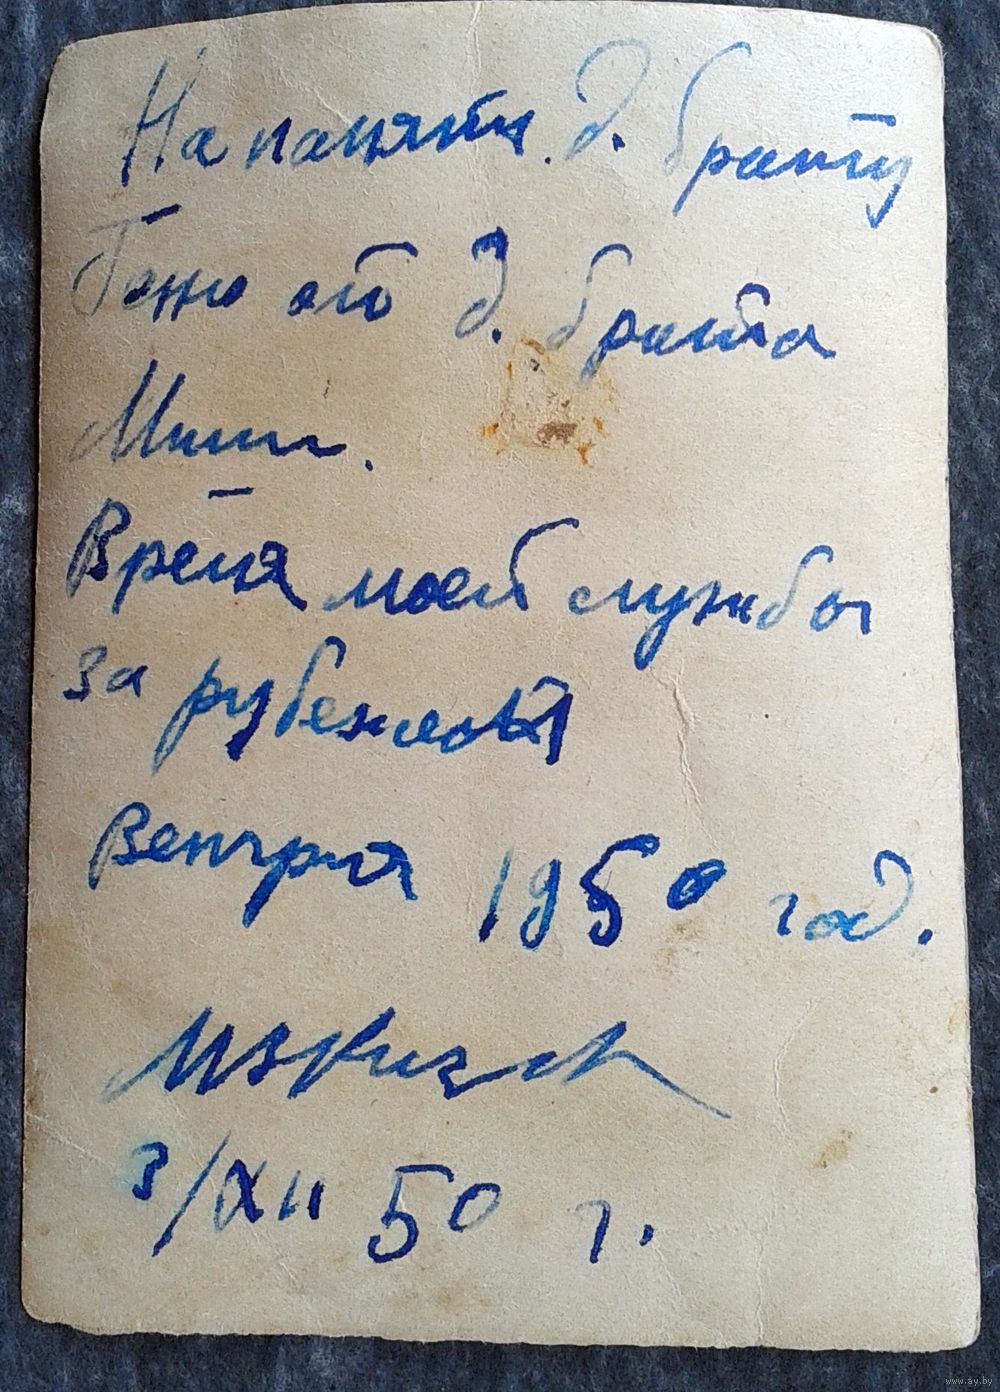 На память д. брату
Гене от д. брата
Миши.
Время моей службы
за рубежом
Венгрия 1950 год.
3/XII 50 г.
www.ay.by